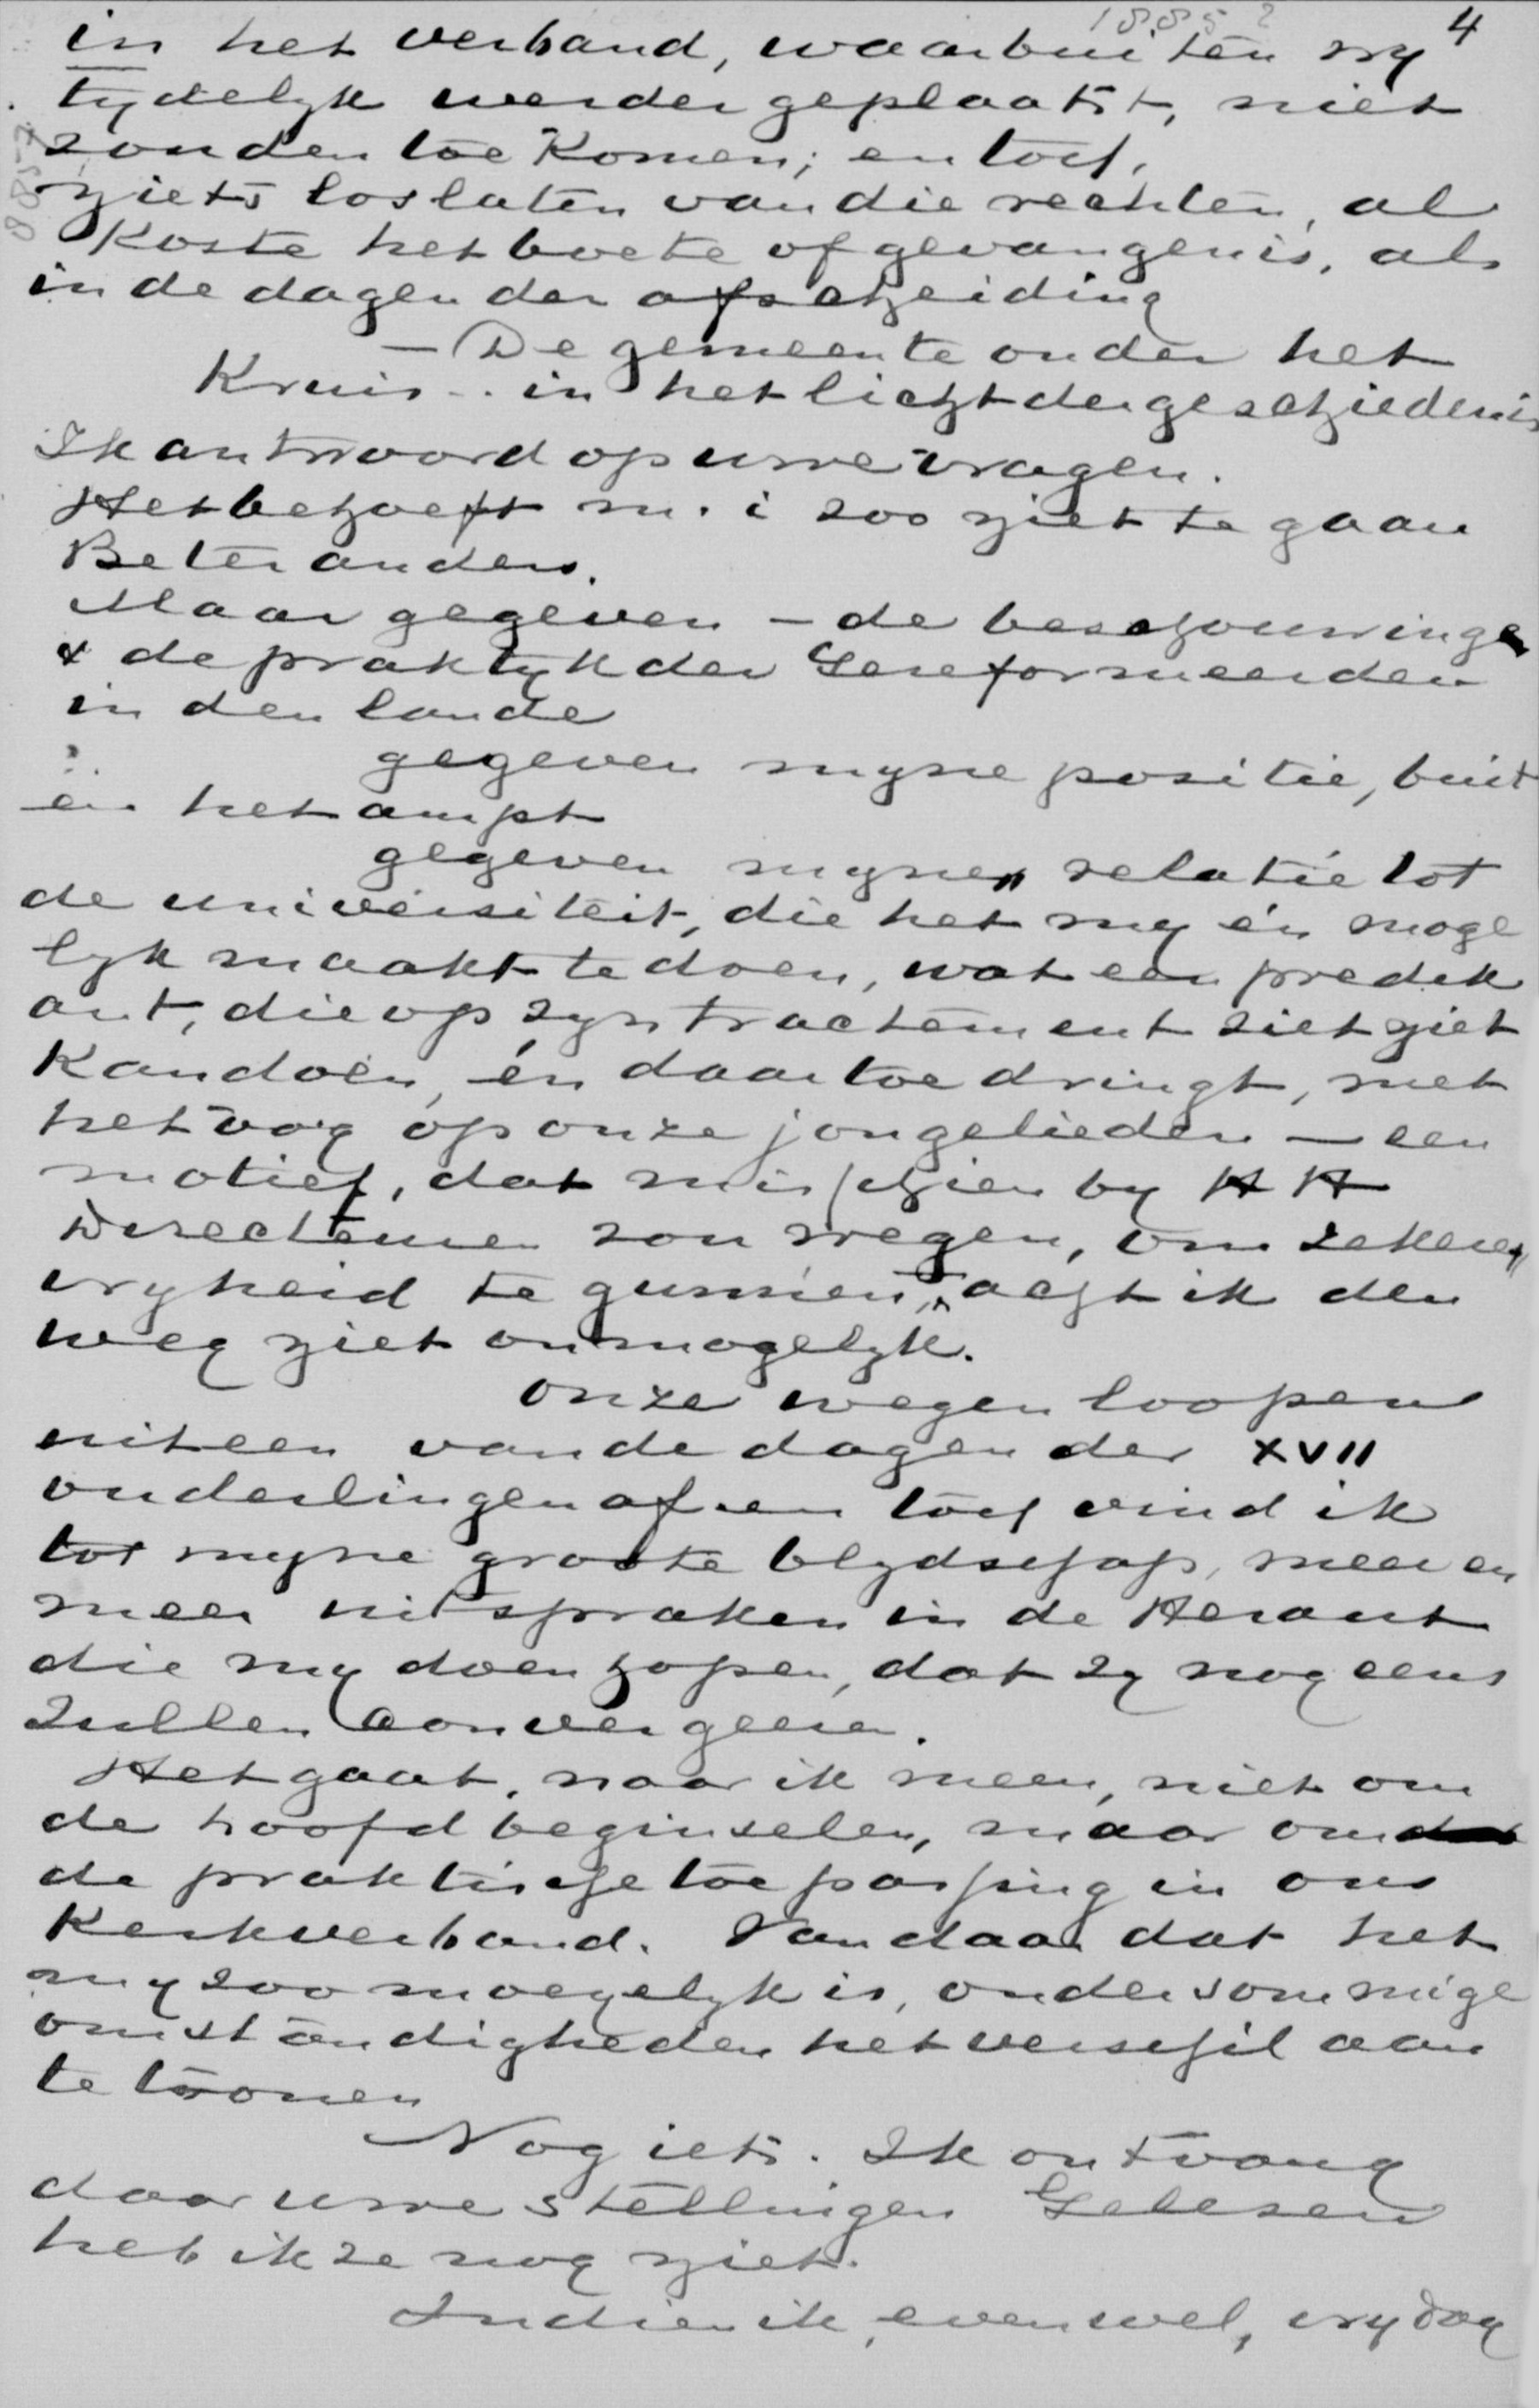 1885? 4
in het verband, waarbuiten wy
tydelyk werden geplaatst, niet
zouden toe Komen; en toch,
niets loslaten van die rechten, al
Koste het boete of gevangenis, als
in de dagen der afscheiding
— De gemeente onder het
Kruis - in het licht der geschiedenis
Ik antwoord op uwe vragen.
Het behoeft m. i zoo niet te gaan
Beter anders.
Maar gegeven — de beschouwingen
& de praktyk der Gereformeerden
in den lande
gegeven myne positie, buit
en het ampt
gegeven myne relatie tot
de universiteit, die het my én moge
lyk maakt te doen, wat een predik
ant, die op zyn tractement ziet niet
Kan doen, én daartoe dringt, met
het oog op onze jongelieden — een
motief, dat misschien by HH
Directeuren zou wegen, om zekere
vryheid te gunnen, acht ik den
weg niet onmogelyk.
Onze wegen loopen
uiteen van de dagen der XVII
ouderlingen af en toch vind ik
tot myne groote blydschap, meer en
meer uitspraken in de Heraut
die my doen hopen, dat zy nog eens
zullen convergeeren.
Het gaat, naar ik meen, niet om
de hoofdbeginselen, maar om
de praktische toepassing in ons
Kerkverband. Vandaar dat het
my zoo moeyelyk is, onder sommige
omstandigheden het verschil aan
te toonen
Nog iets. Ik ontvang
daar uwe stellingen Gelezen
heb ik ze nog niet.
Indien ik, evenwel, vrydag